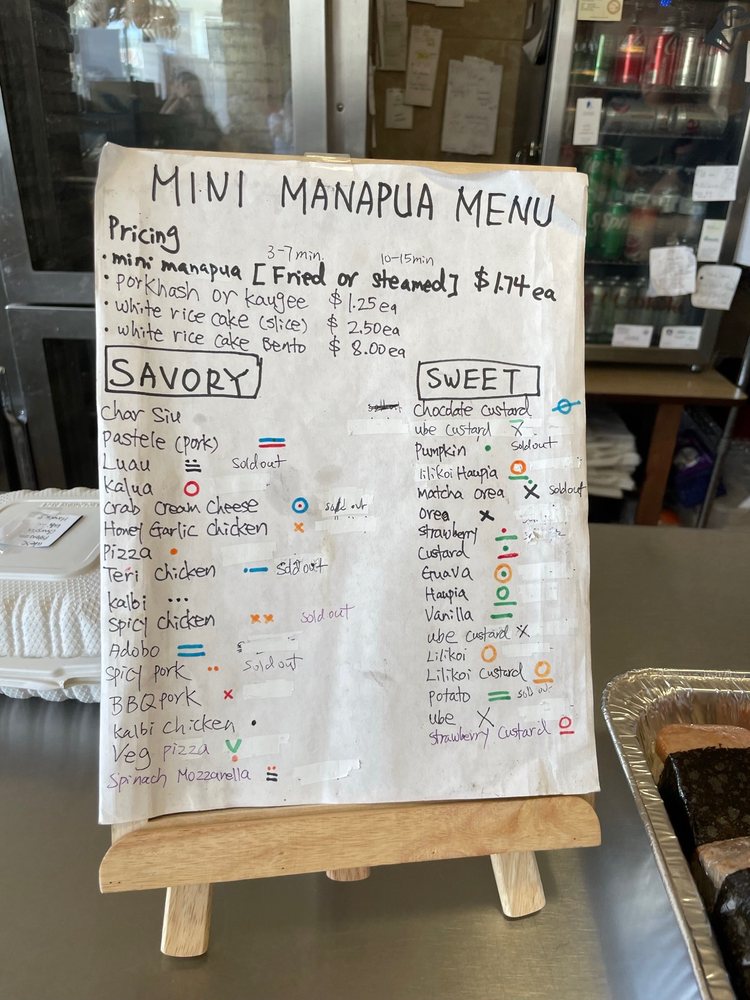 MINI MANAPUA MENU
Pricing
3-7 min. 10-15min
• mini manapua [Fried or Steamed] $1.74 ea
• porkhash or kaugee $1.25 ea
• white rice cake (slice) $2.50ea
• white rice cake Bento $8.00ea
SAVORY
Char Siu
Pastele (pork)
Luau Sold out
Kalua
Crab Cream Cheese Sold out
Honey Garlic chicken
Pizza
Teri chicken Sold out
Kalbi
Spicy chicken Sold out
Adobo
Spicy pork Sold out
BBQ pork
Kalbi chicken
Veg pizza
Spinach Mozzarella
SWEET
Chocdate custard
ube custard
Pumpkin Sold out
lilikoi Haupia
Matcha orea Sold out
orea
Strawberry
Custard
Guava
Haupia
Vanilla
ube custard
Lilikoi
Lilikoi Custard
Potato Sold out
ube
Strawberry Custard